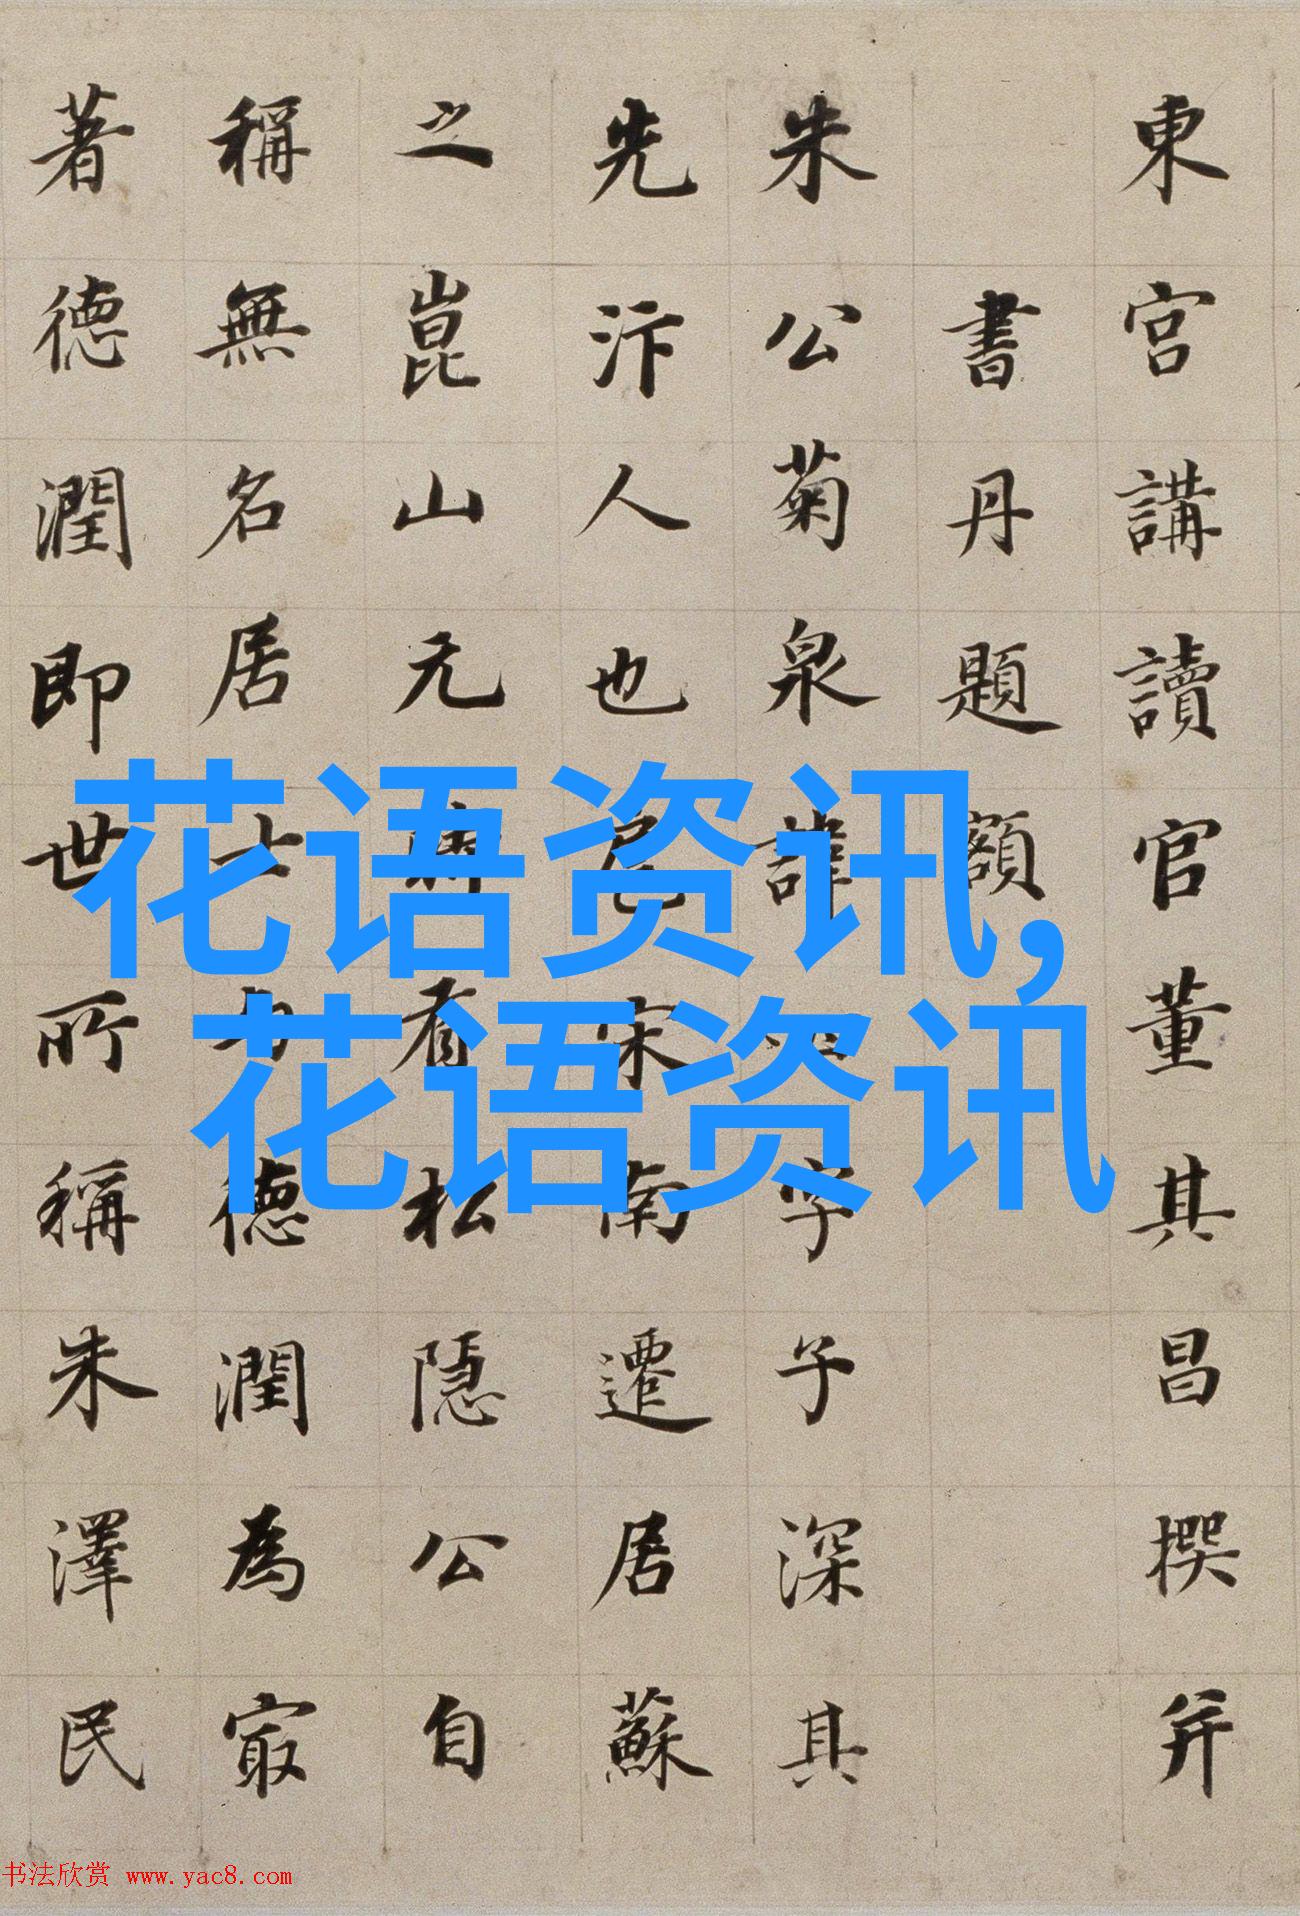 東宮講讀官董其昌撰并
書丹題額
朱公菊泉諱 字子深其
先汴人也 宋南遷居蘇
之崑山元 有 松隱公自
稱無名居士 德潤為最
著德潤即世所稱朱澤民
花语资讯,
花语资讯
书法欣赏 www.yac8.com